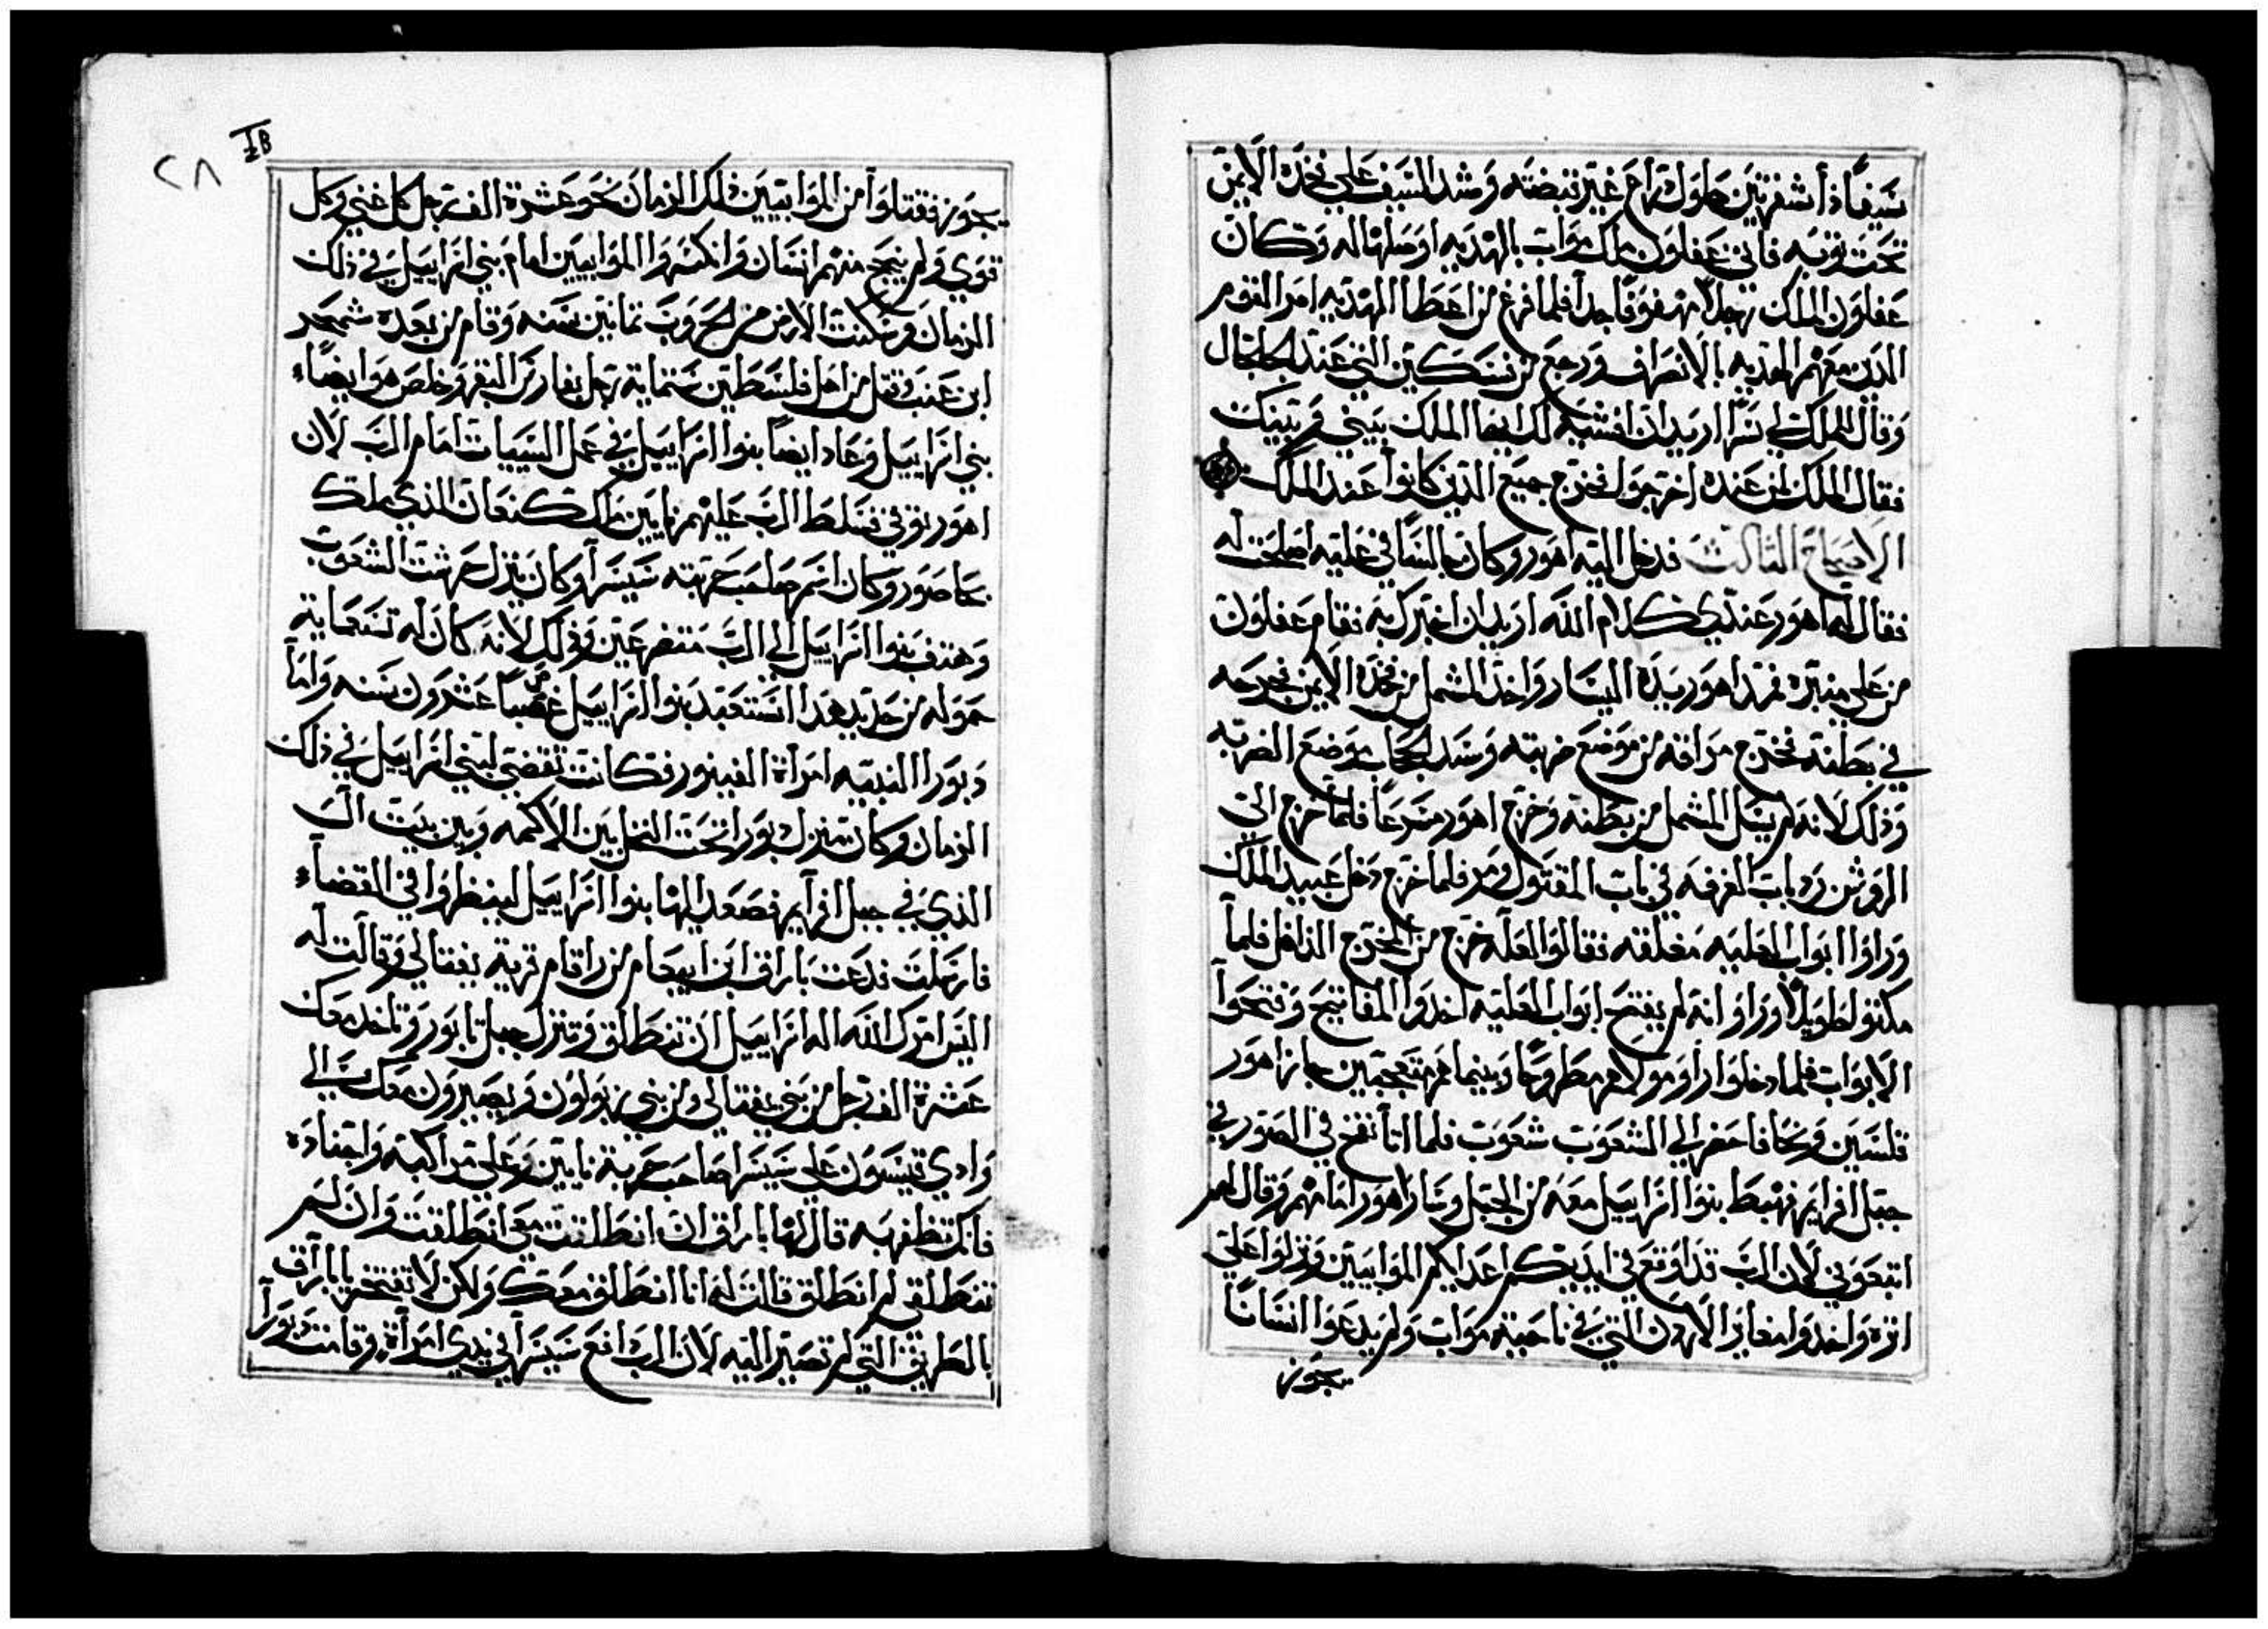 سَيفاً ذا شفرتين طوله ذراع غير قبضته وشد السيف على فخده الايمن
تحت توبه فاتى عفلون ملك مواب بالهديه اوصلها له وكان
عفلون الملك رجلا جدا فلما فرغ من اعطا الهديه امر القوم
الدين معهم الهديه بالانصراف ورجع من التي عند الجلجال
وقال للملك لي سرا اريد ان افشيه لك ايها الملك بيني وبينك
فقال الملك لمن عنده اخرجوا فخرج جميع الدين كانوا عند الملك
الاصحاح التالت فدخل اليه اهور وكان جالسا في عليه اصلحت له
فقال له اهور عندي كلام الله اريد ان اخبرك به فقام عفلون
من على منبره فمد اهور يده اليسار واخد المشمل من فخده الايمن فجرحه
في بطنه فخرج مراقه من موضع ضربته وسد الحجاب موضع الضربه
وذلك لانه لم يسل المشمل من بطنه وخرج اهور مسرعا فلما خرج الى
الروشن رد باب الغرفه في باب المقتول ومر فلما خرج دخل عبيد الملك
وراوا ابواب العليه مغلقه فقالوا لعله خرج من المخرج الداخل فلما
مكتوا طويلا وراو انه لم يفتح ابواب العليه اخدوا المفاتيح وفتحوا
الابواب فلما دخلوا راو مولاهم مطروحا وبينما هم متعجبين جاز اهور
ونجا فاحضر الى الشعوب شعوب فلما اتا نفخ في الصور في
جبل افرايم فهبط بنوا اسراييل معه من الجبل وسار اهور امامهم وقال لهم
اتبعوني لان الرب قد اوقع في ايديكم اعدايكم الموابيين ونزلوا على
اثره واخدوا معابر الاردن التي في ناحية مواب ولم يدعوا انسانا
يجوز
٢٨ IB
يجوز فقتلوا من الموابيين ذلك الزمان نحو عشرة الف رجل كل غني وكل
قوي ولم ينج منهم انسان وانكسروا الموابيين امام بني اسراييل في ذلك
الزمان وسكنت الارض من الحروب تمانين سنه وقام من بعده شمجر
ابن عنب وقتل من اهل فلسطين ستماية رجل البقر وخلص هو ايضاء
بني اسراييل وعاد ايضا بنوا اسراييل في عمل السييات امام الرب لان
اهور توفي فسلط الرب عليهم نابين ملك كنعان الذي ملك
بحاصور وكان اسم صاحب حربته سيسرا وكان ينزل حرشت الشعوب
وهتف بنوا اسراييل الى الرب متضرعين وذلك لانه كان له تسعماية
حموله من حديد هدا استعبد بنوا اسراييل غصبا عشرون سنه واما
دبورا النبيه امراة الفينور فكانت تقضي لبني اسراييل في ذلك
الزمان وكان منزل دبورا تحت النخل بين الاكمه وبين بيت ال
الذي في جبل افرآيم فصعد اليها بنوا اسراييل لينظروا في القضاء
فارسلت فدعت باراق ابن ابينعام من راقام قرية يفتالي وقالت له
اليس امرك الله اله اسراييل ان تنطلق وتنزل جبل تابور وتاخد معك
عشرة الف رجل من بني يفتالي ومن بني زبولون ويصيرون معك الى
وادي قيسون على سيسرا صاحب حربة نابين وعلى مراكبه واجناده
فانك تظفر به قال لها باراق ان انطلقت معي انطلقت وان لم
تنطلقي لم انطلق قالت له انا انطلق معك ولكن لا تفتخر يا باراق
بالطريق التي لم تصير اليه لان الرب سيسرا في يدي امرآة وقامت دبورآ